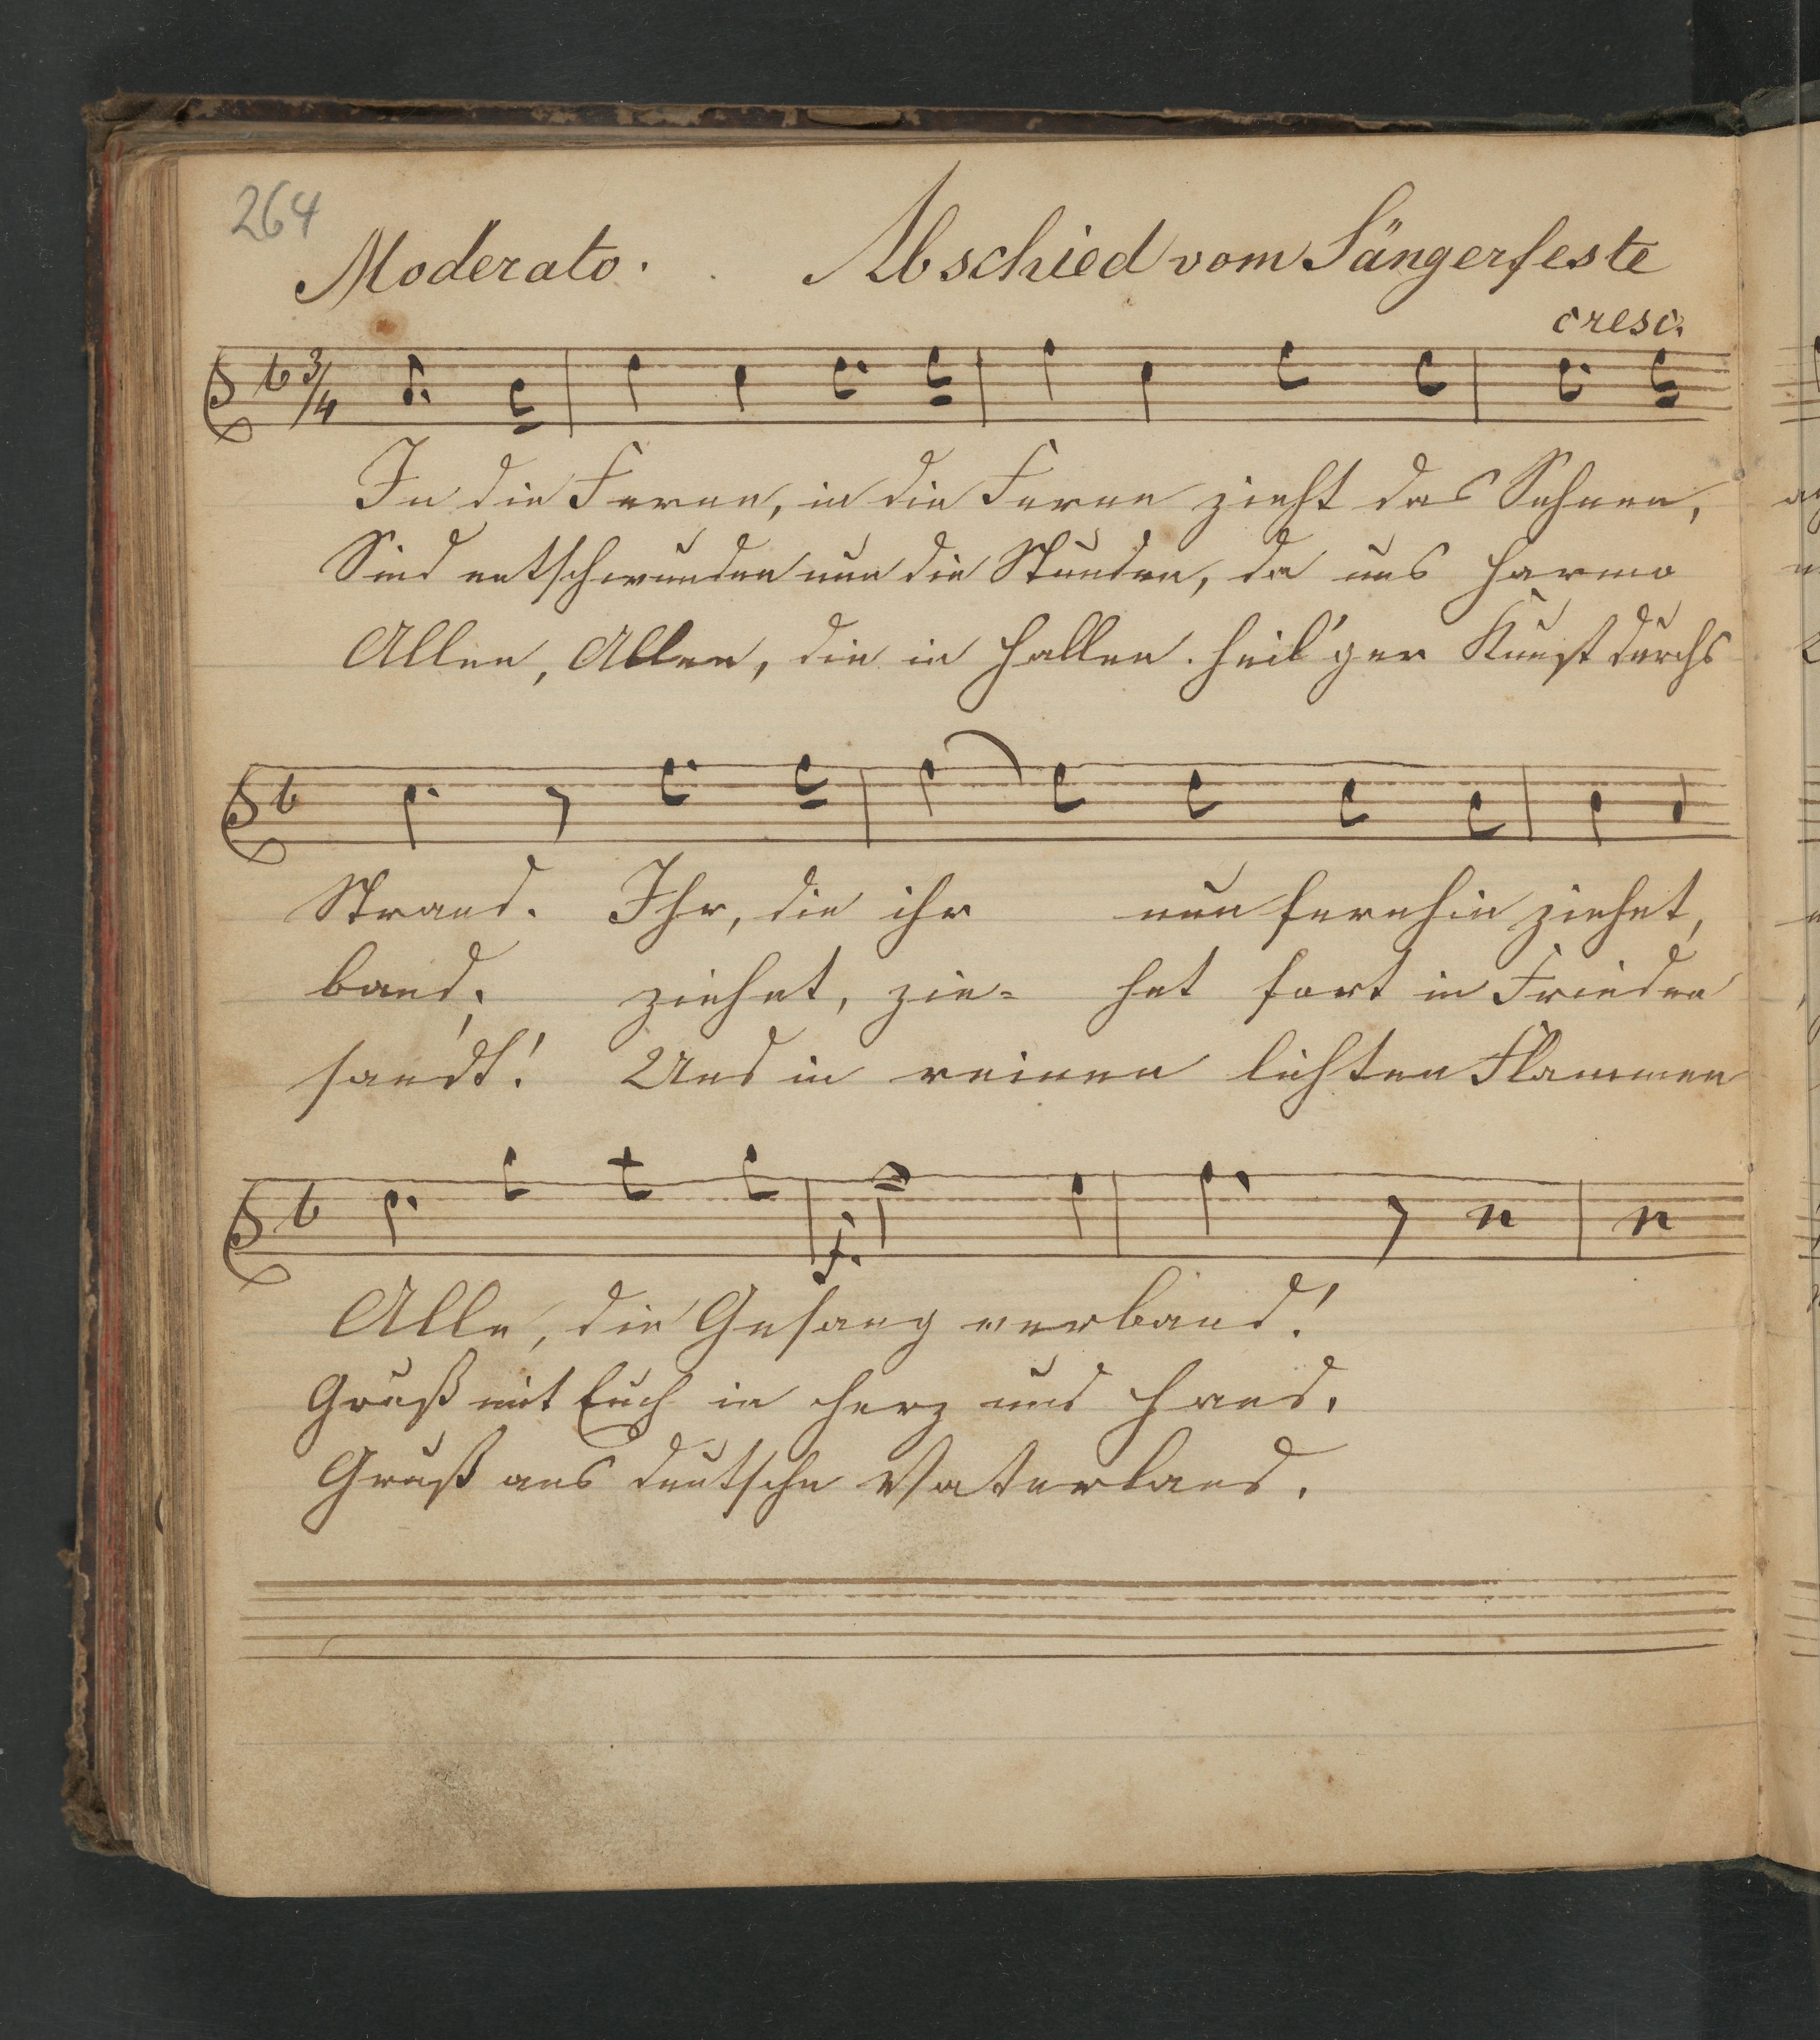 264
Moderato. Abschied vom Sängerfeste
cresc.
3/4
In die Ferne, in die Ferne zieht das Sehnen,
Sind entschwunden nun die Stunden, da uns Harmo
Allen, Allen, die in Hallen heil'ger Kunst durchs
Strand. Ihr, die ihr nun fernhin ziehet,
band; ziehet, zie- het fort in Frieden
sandt! Und in reinen lichten Flammen
f.
Alle, die Gesang verband!
Gruß mit Euch in Herz und Hand.
Gruß ans deutsche Vaterland.